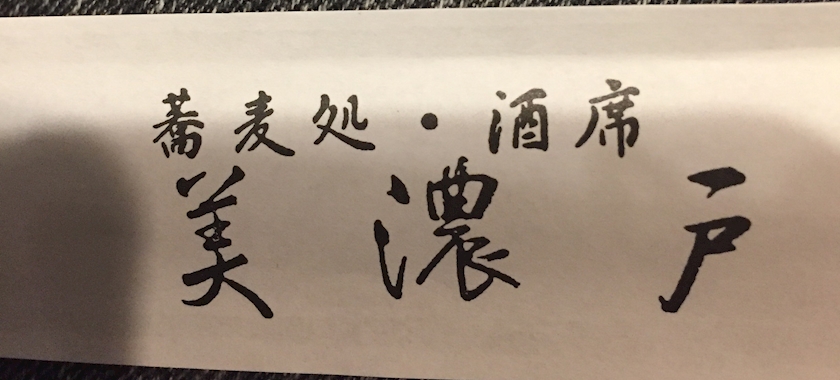 蕎麦処・酒席
美濃戸